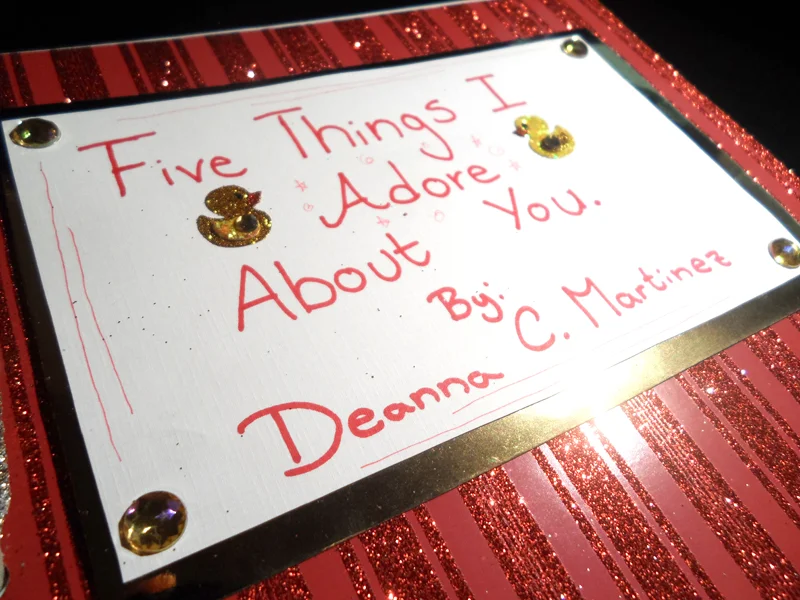 Five Things I
Adore
About You.
By:
Deanna C. Martinez